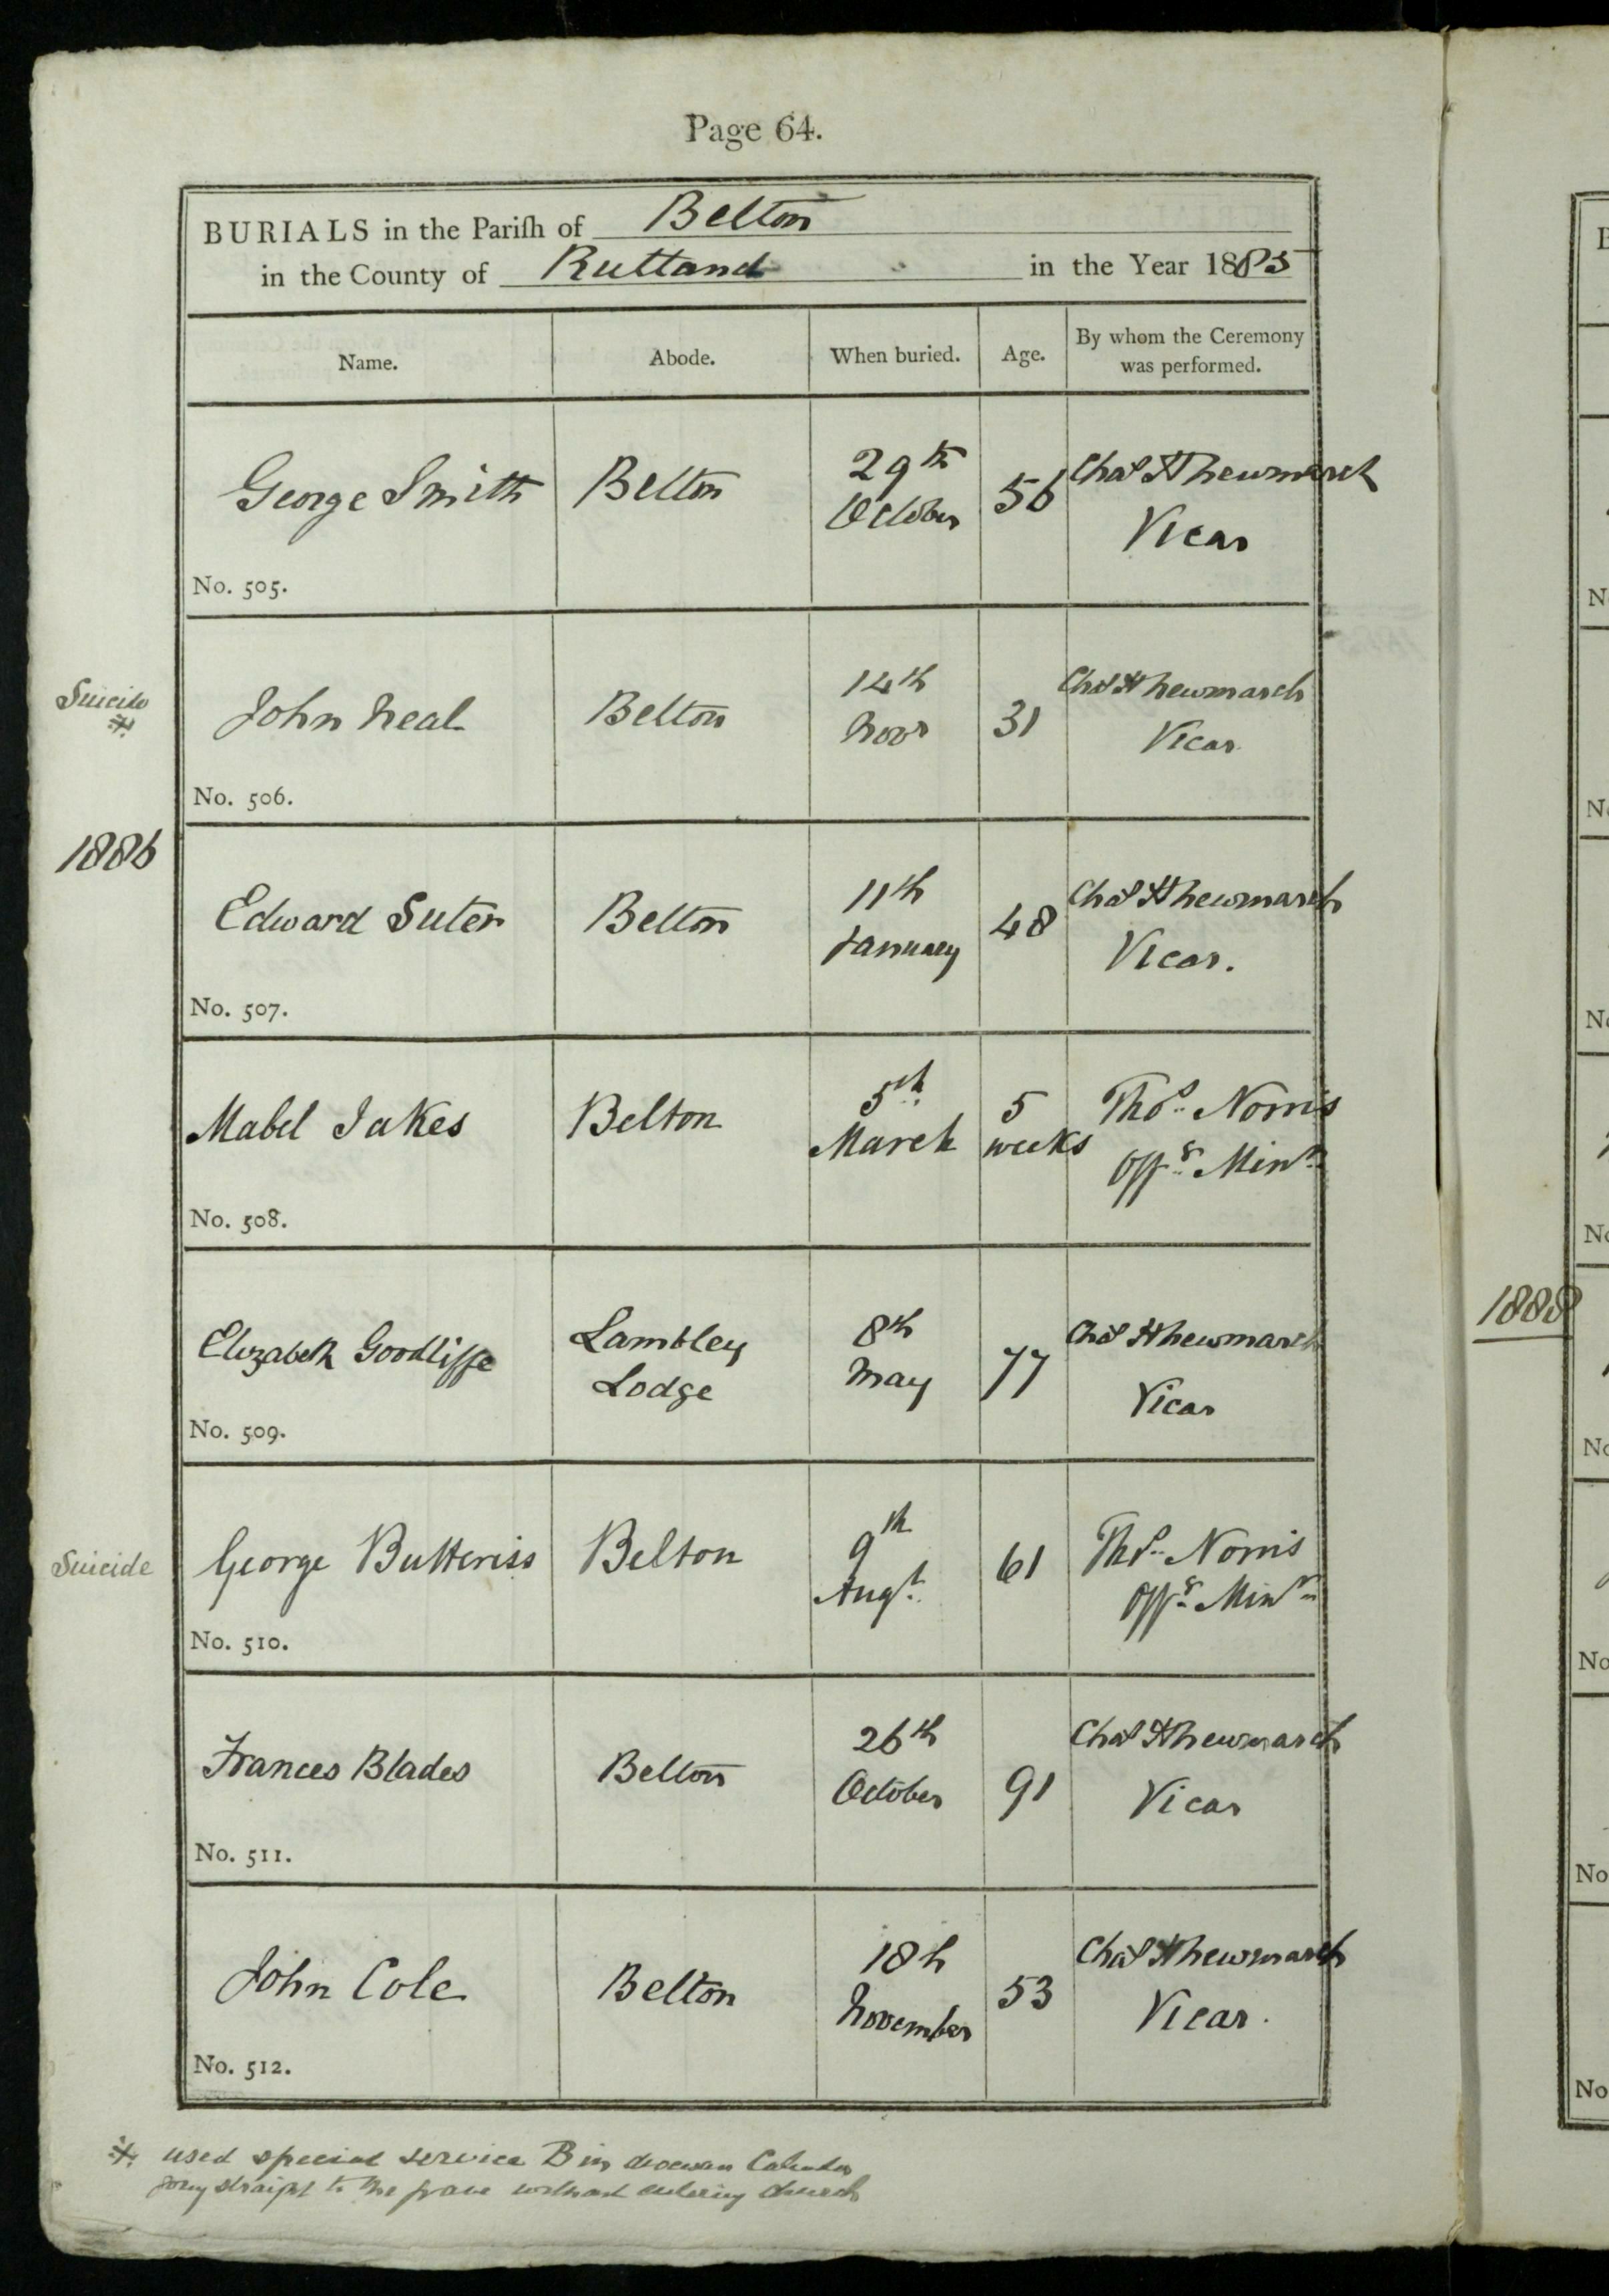 Page 64.
BURIALS in the Pariſh of Belton
in the County of Rutland in the Year 1885
Name. Abode. When buried. Age. By whom the Ceremony was performed.
George Smith Belton 29th October 56 Chas H Newmarch Vicar
No. 505.
Suicide *
John Neal Belton 14th Novr 31 Chas H Newmarch Vicar
No. 506.
1886
Edward Suter Belton 11th January 48 Chas H Newmarch Vicar.
No. 507.
Mabel Jakes Belton 5th March 5 weeks Thos. Norris Offg. Minr.
No. 508.
Elizabeth Goodliffe Lambley Lodge 8th May 77 Chas H Newmarch Vicar
No. 509.
1888
Suicide
George Butteriss Belton 9th Augt. 61 Thos. Norris Offg. Minr.
No. 510.
Frances Blades Belton 26th October 91 Chas H Newmarch Vicar
No. 511.
John Cole Belton 18h November 53 Chas H Newmarch Vicar.
No. 512.
* used special service B in diocesan
going straight to the grave without entering church